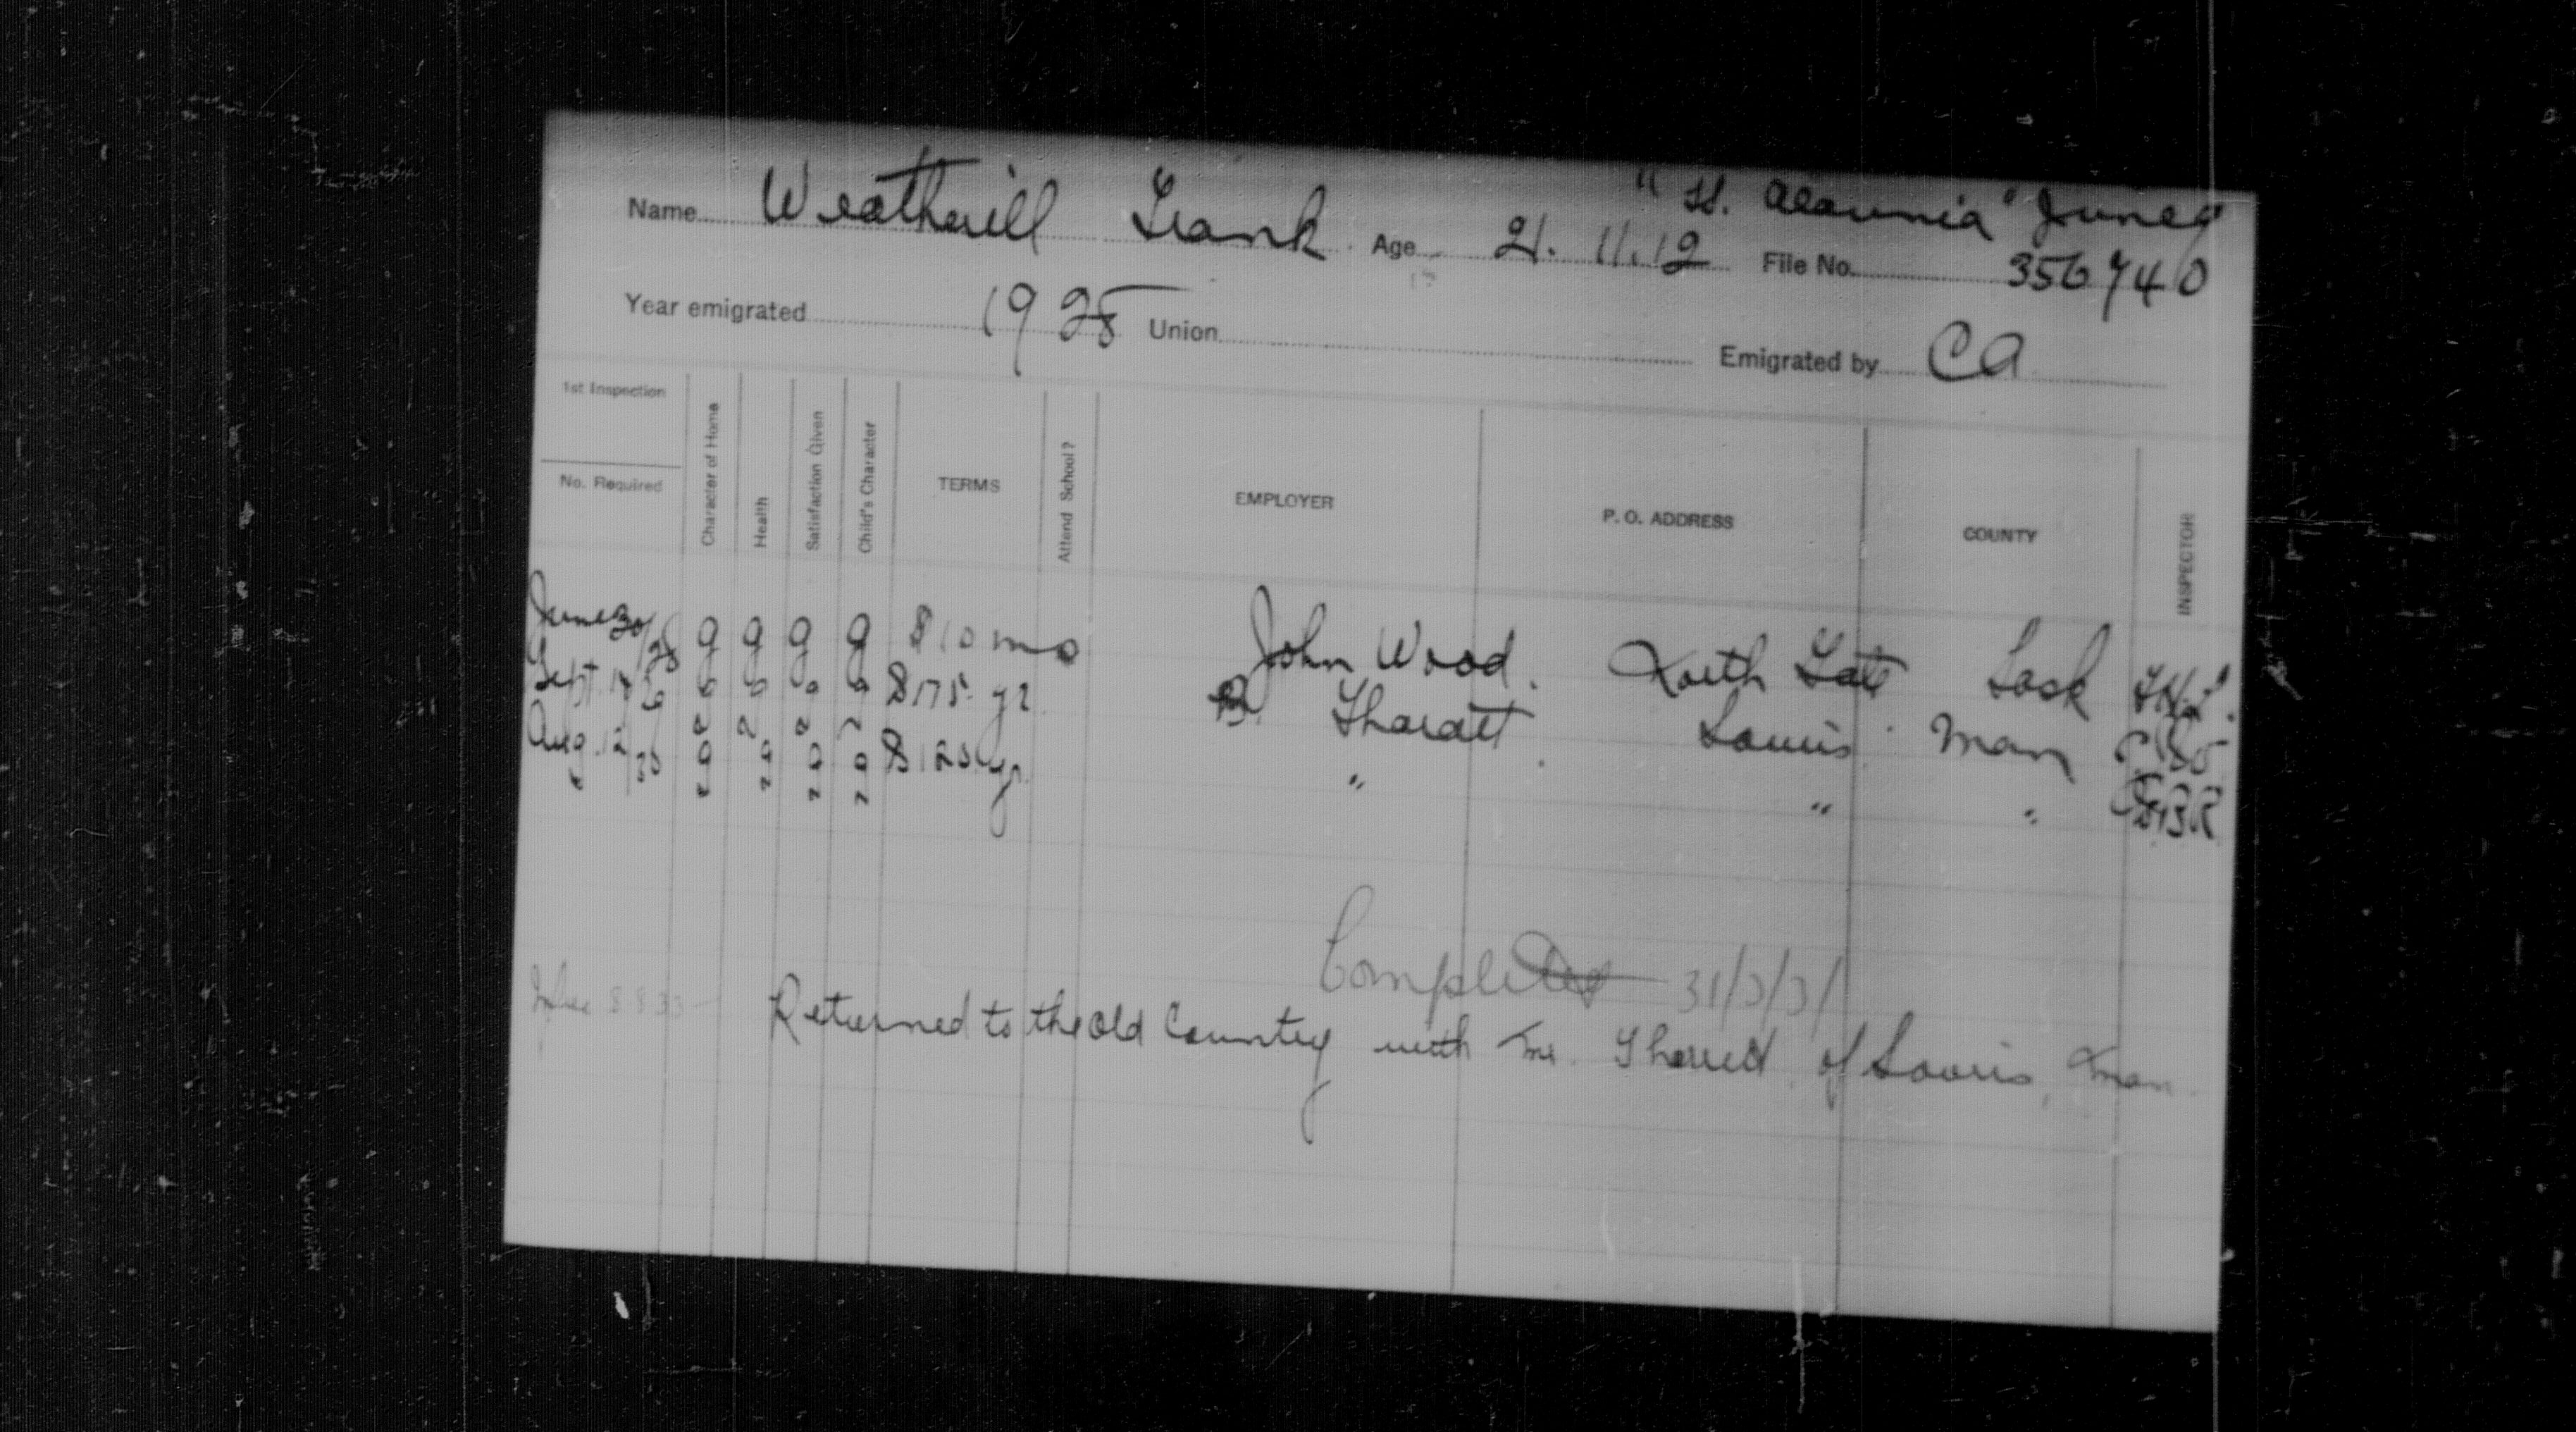 "SS. Alaunia" June 9
Name Weatherill Frank Age 21.11.12 File No. 356740
Year emigrated 1928 Union Emigrated by CA
1st Inspection
No. Required
Character of Home
Health
Satisfaction Given
Child's Character
TERMS
Attend School?
EMPLOYER
P. O. ADDRESS
COUNTY
INSPECTOR
June 30/28 g g g g $10 mo John Wood. North Gate Sask
Sept. g g g g $175 yr B. Sharatt. Souris Man
Aug. 12/30 g g g g $120 yr " " " GBR
Completed 31/3/31
Returned to the Old Country with Mr. Sharrett of Souris, Man.